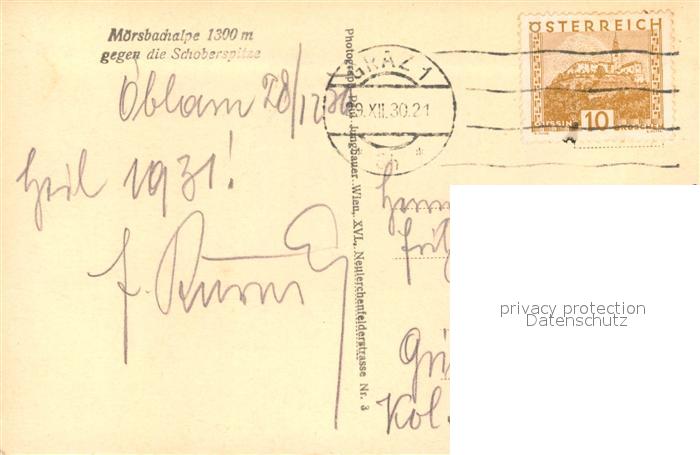 Mörsbachalpe 1300 m
gegen die Schoberspitze
Öblarn 28/12 30
Heil 1931!
Photograph Jungbauer, Wien, XVI., Neulerchenfelderstrasse Nr. 3
GRAZ 1
29.XII.30.21
ÖSTERREICH
GÜSSING 10 GROSCHEN
Herrn
Kol.
privacy protection
Datenschutz